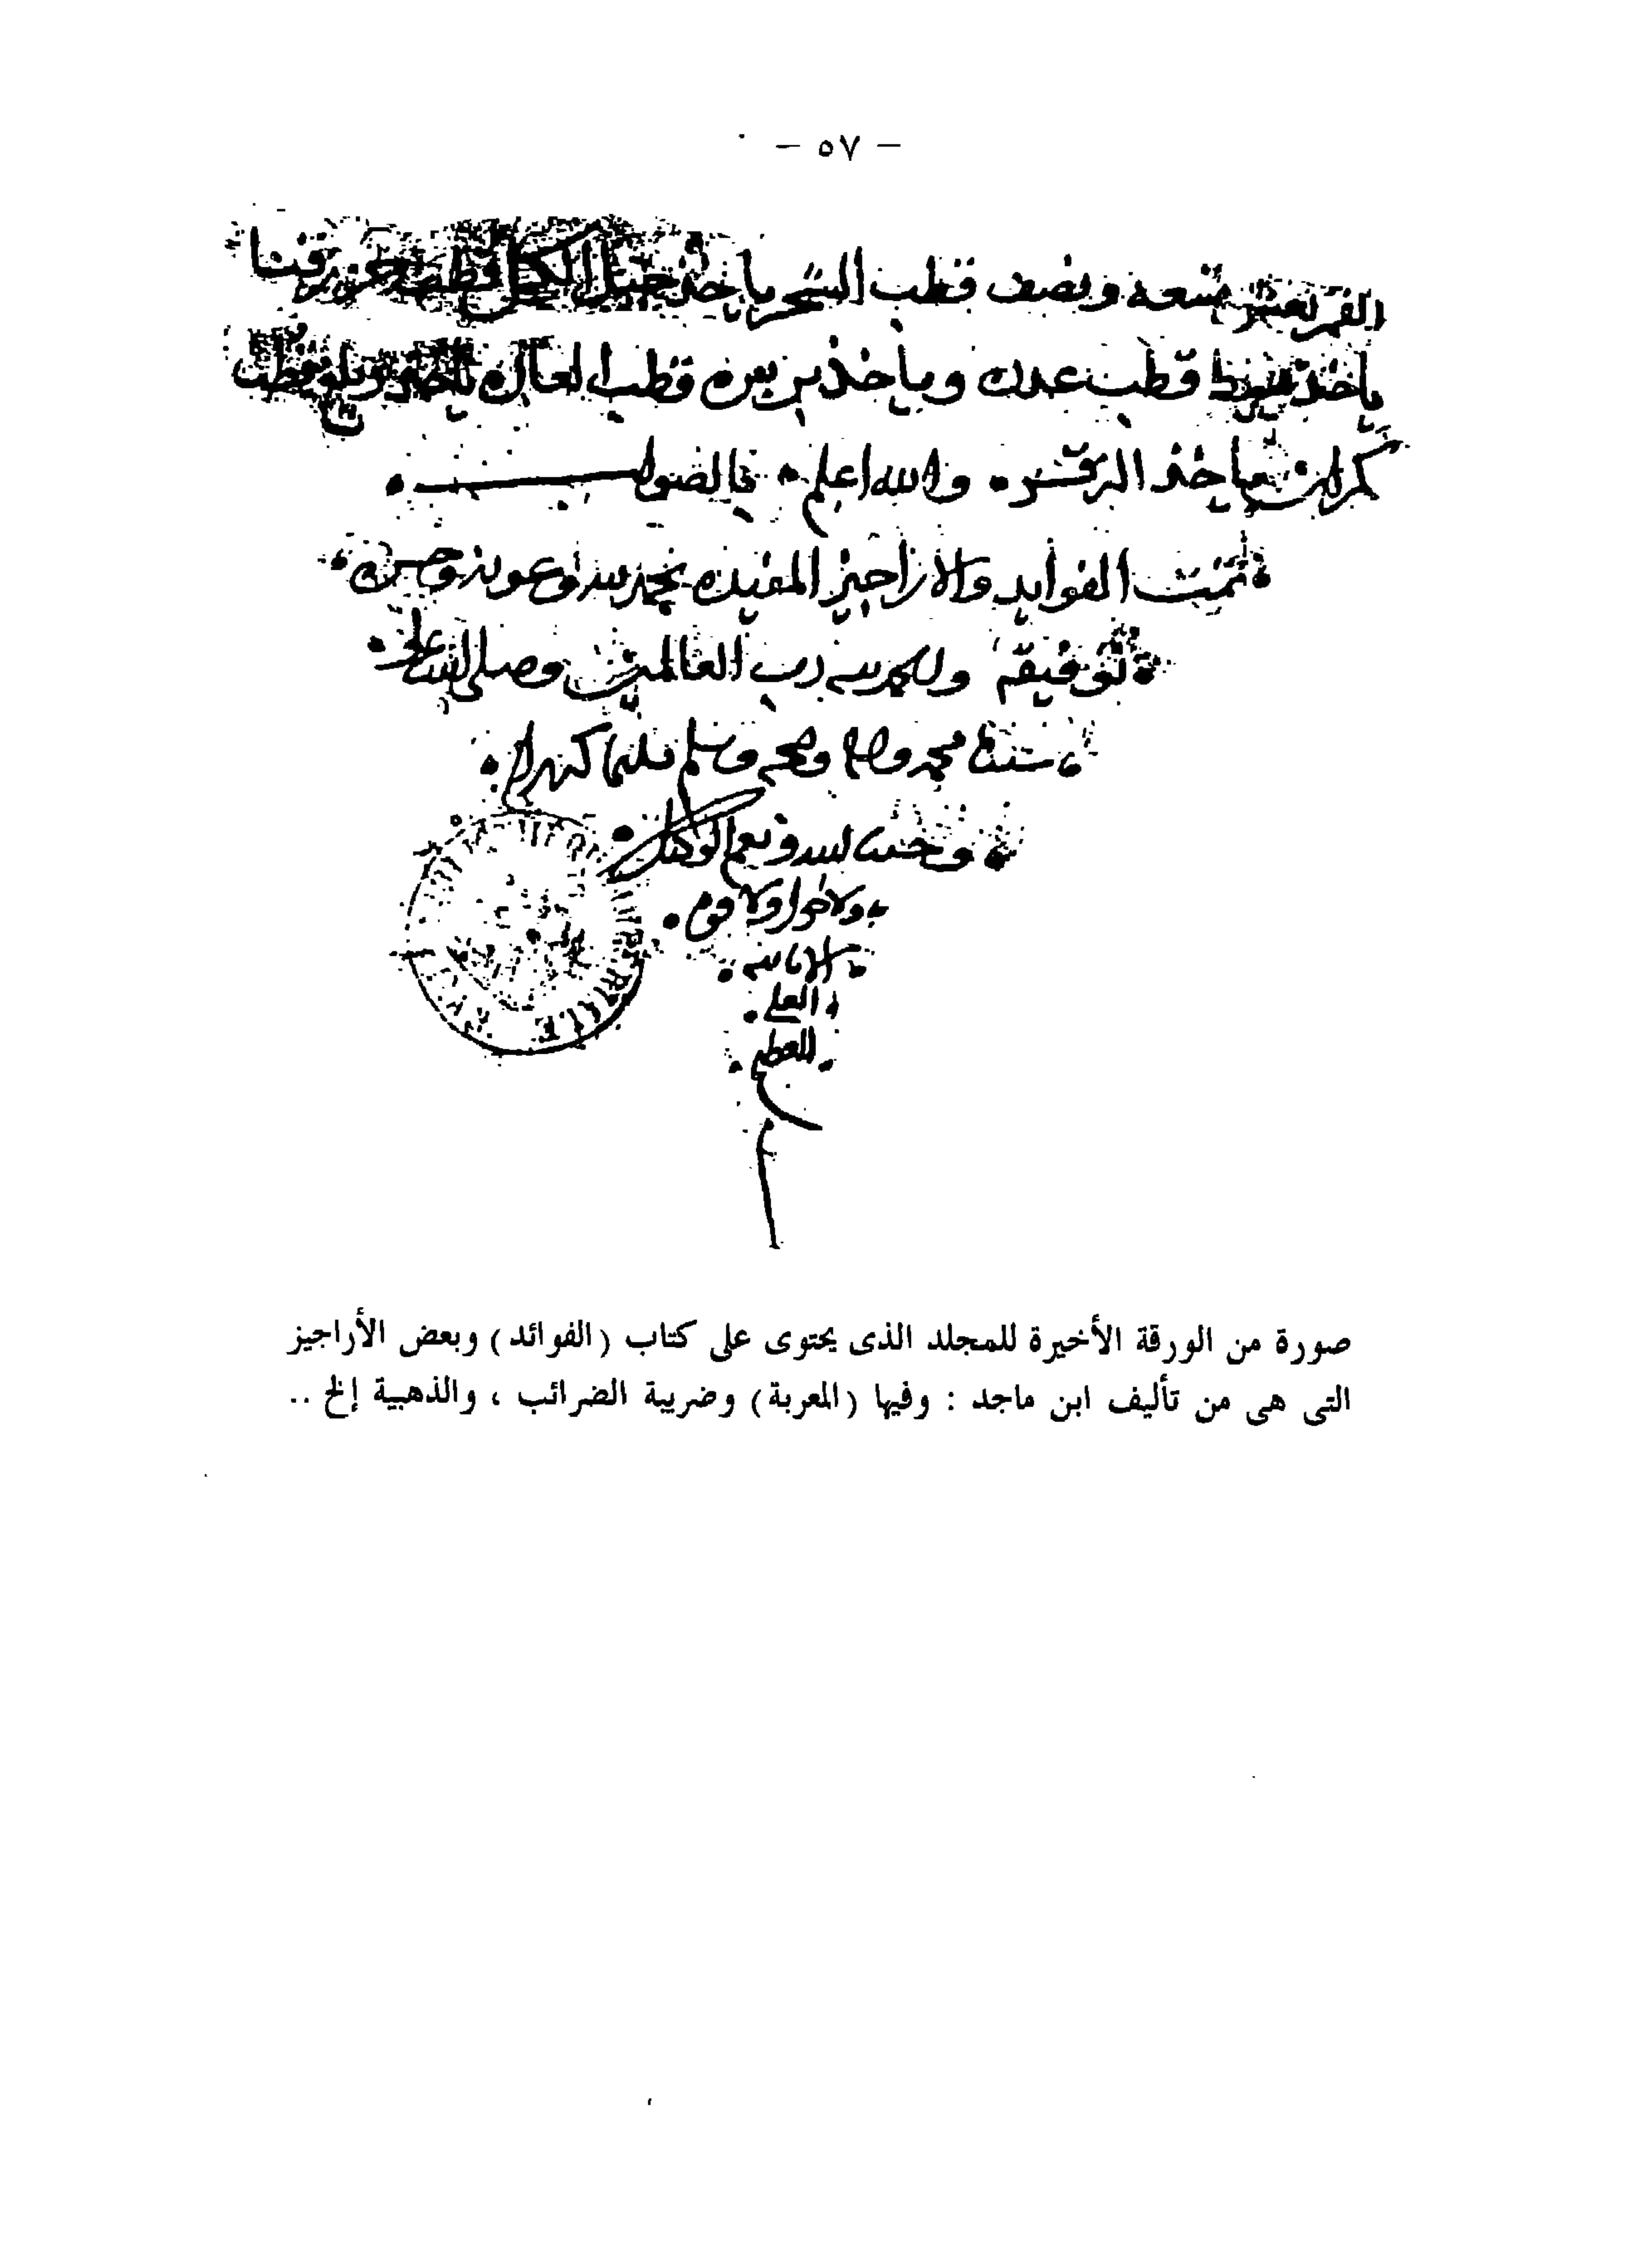 — ٥٧ —
ونصف قطب الشحر ياخذ جبل
ياخذ قطب عدن وياخذ بربره قطب
كمران ياخذ والله اعلم بالصواب
تمت الفوايد والاراجيز المفيده بحمد الله وعونه وحسن
توفيقه والحمد لله رب العالمين وصلى الله على
سيدنا محمد واله وصحبه وسلم تسليما كثيرا
وحسبنا الله ونعم الوكيل
ولا حول ولا قوه
الا بالله
العلي
العظيم
صورة من الورقة الأخيرة للمجلد الذى يحتوى على كتاب (الفوائد) وبعض الأراجيز
التى هى من تأليف ابن ماجد : وفيها (المعربة) وضريبة الضرائب ، والذهبية إلخ ..